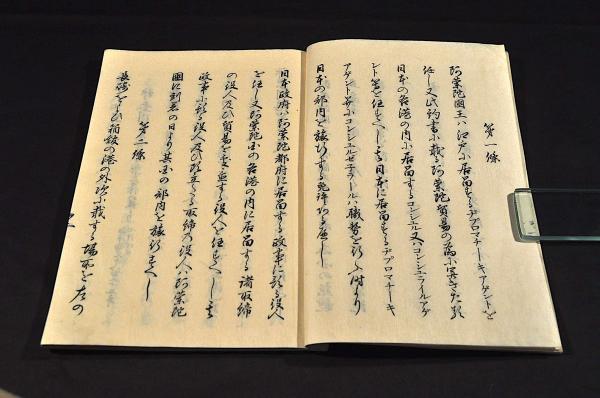 第一條
阿蘭陀國王ハ江戸に居留するヂプロマチーキアゲントを
任し又此約書に載る阿蘭陀貿易の為に開きたる
日本の各港の内に居留するコンシュル又ハコンシュライルアゲ
ント等を任すへし其日本に居留するヂプロマチーキ
アゲント并にコンシュルゼネラールハ職務を行ふ時より
日本の部内を旅行する免許あるへし
日本政府ハ阿蘭陀都府に居留する政事に預る役人
を任し又阿蘭陀國の各港の内に居留する諸取締
の役人及ひ貿易を処置する役人を任すへし其
政事に預る役人及ひ頭立たる取締の役人ハ阿蘭陀
國に到着の日より其國の部内を旅行すへし
第二條
長崎および箱館の港の外次に載する場所を左の